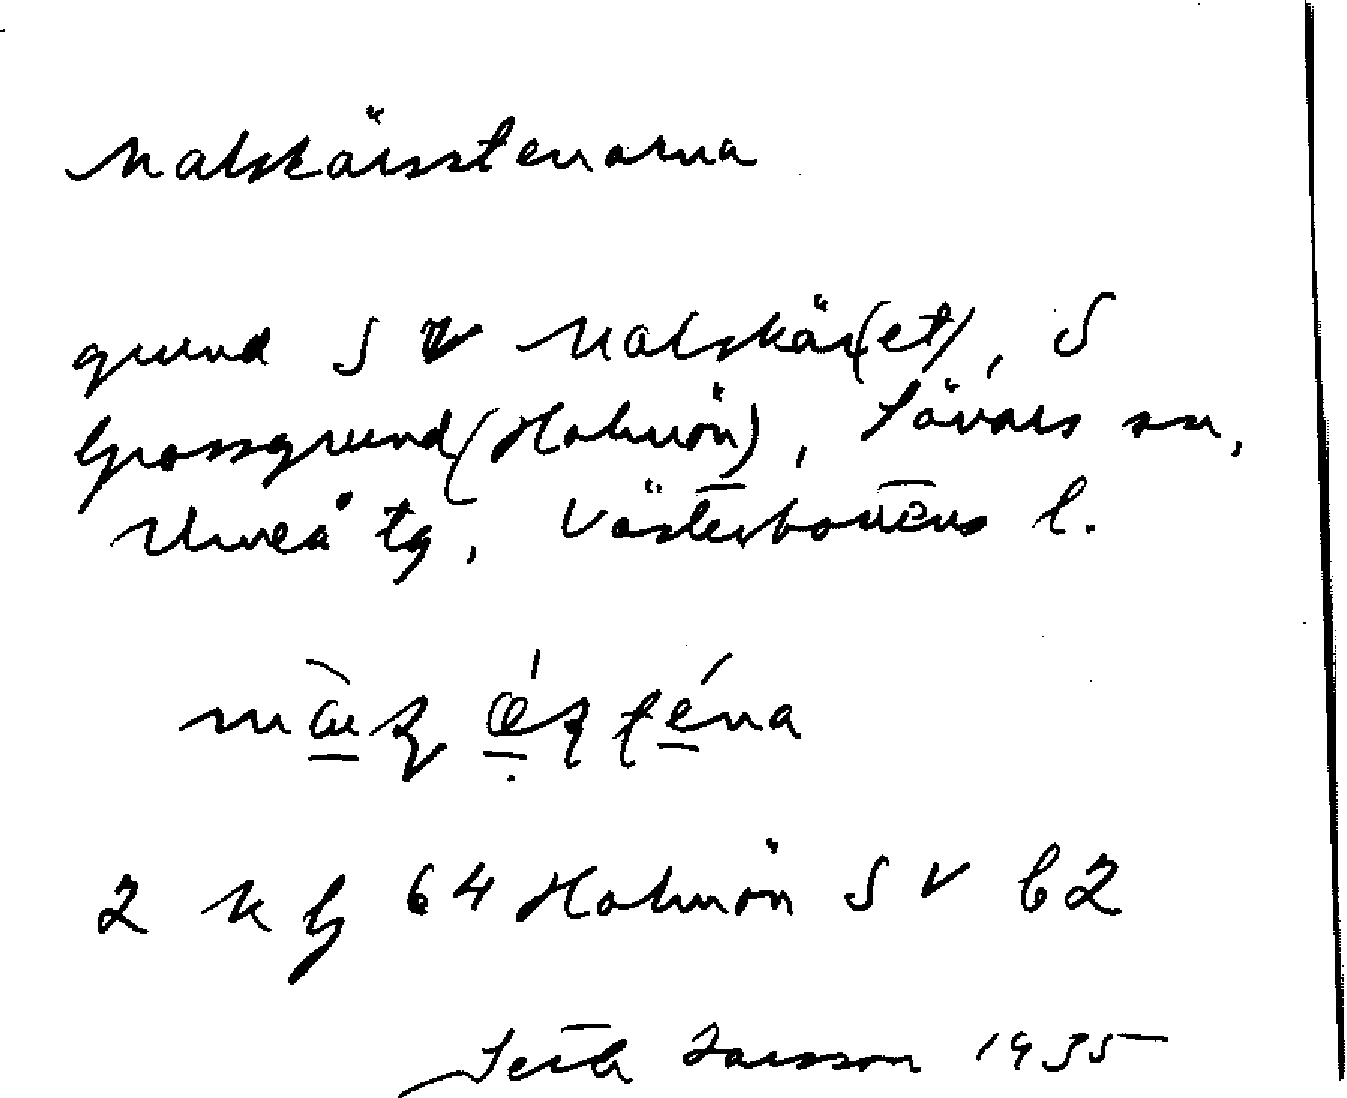 Malskärsstenarna
grund S V Malskär(et), S
Grossgrund (Holmön), Sävars sn,
Umeå tg, Västerbottens l.
2 k G 64 Holmön S V b2
Larsson 1935